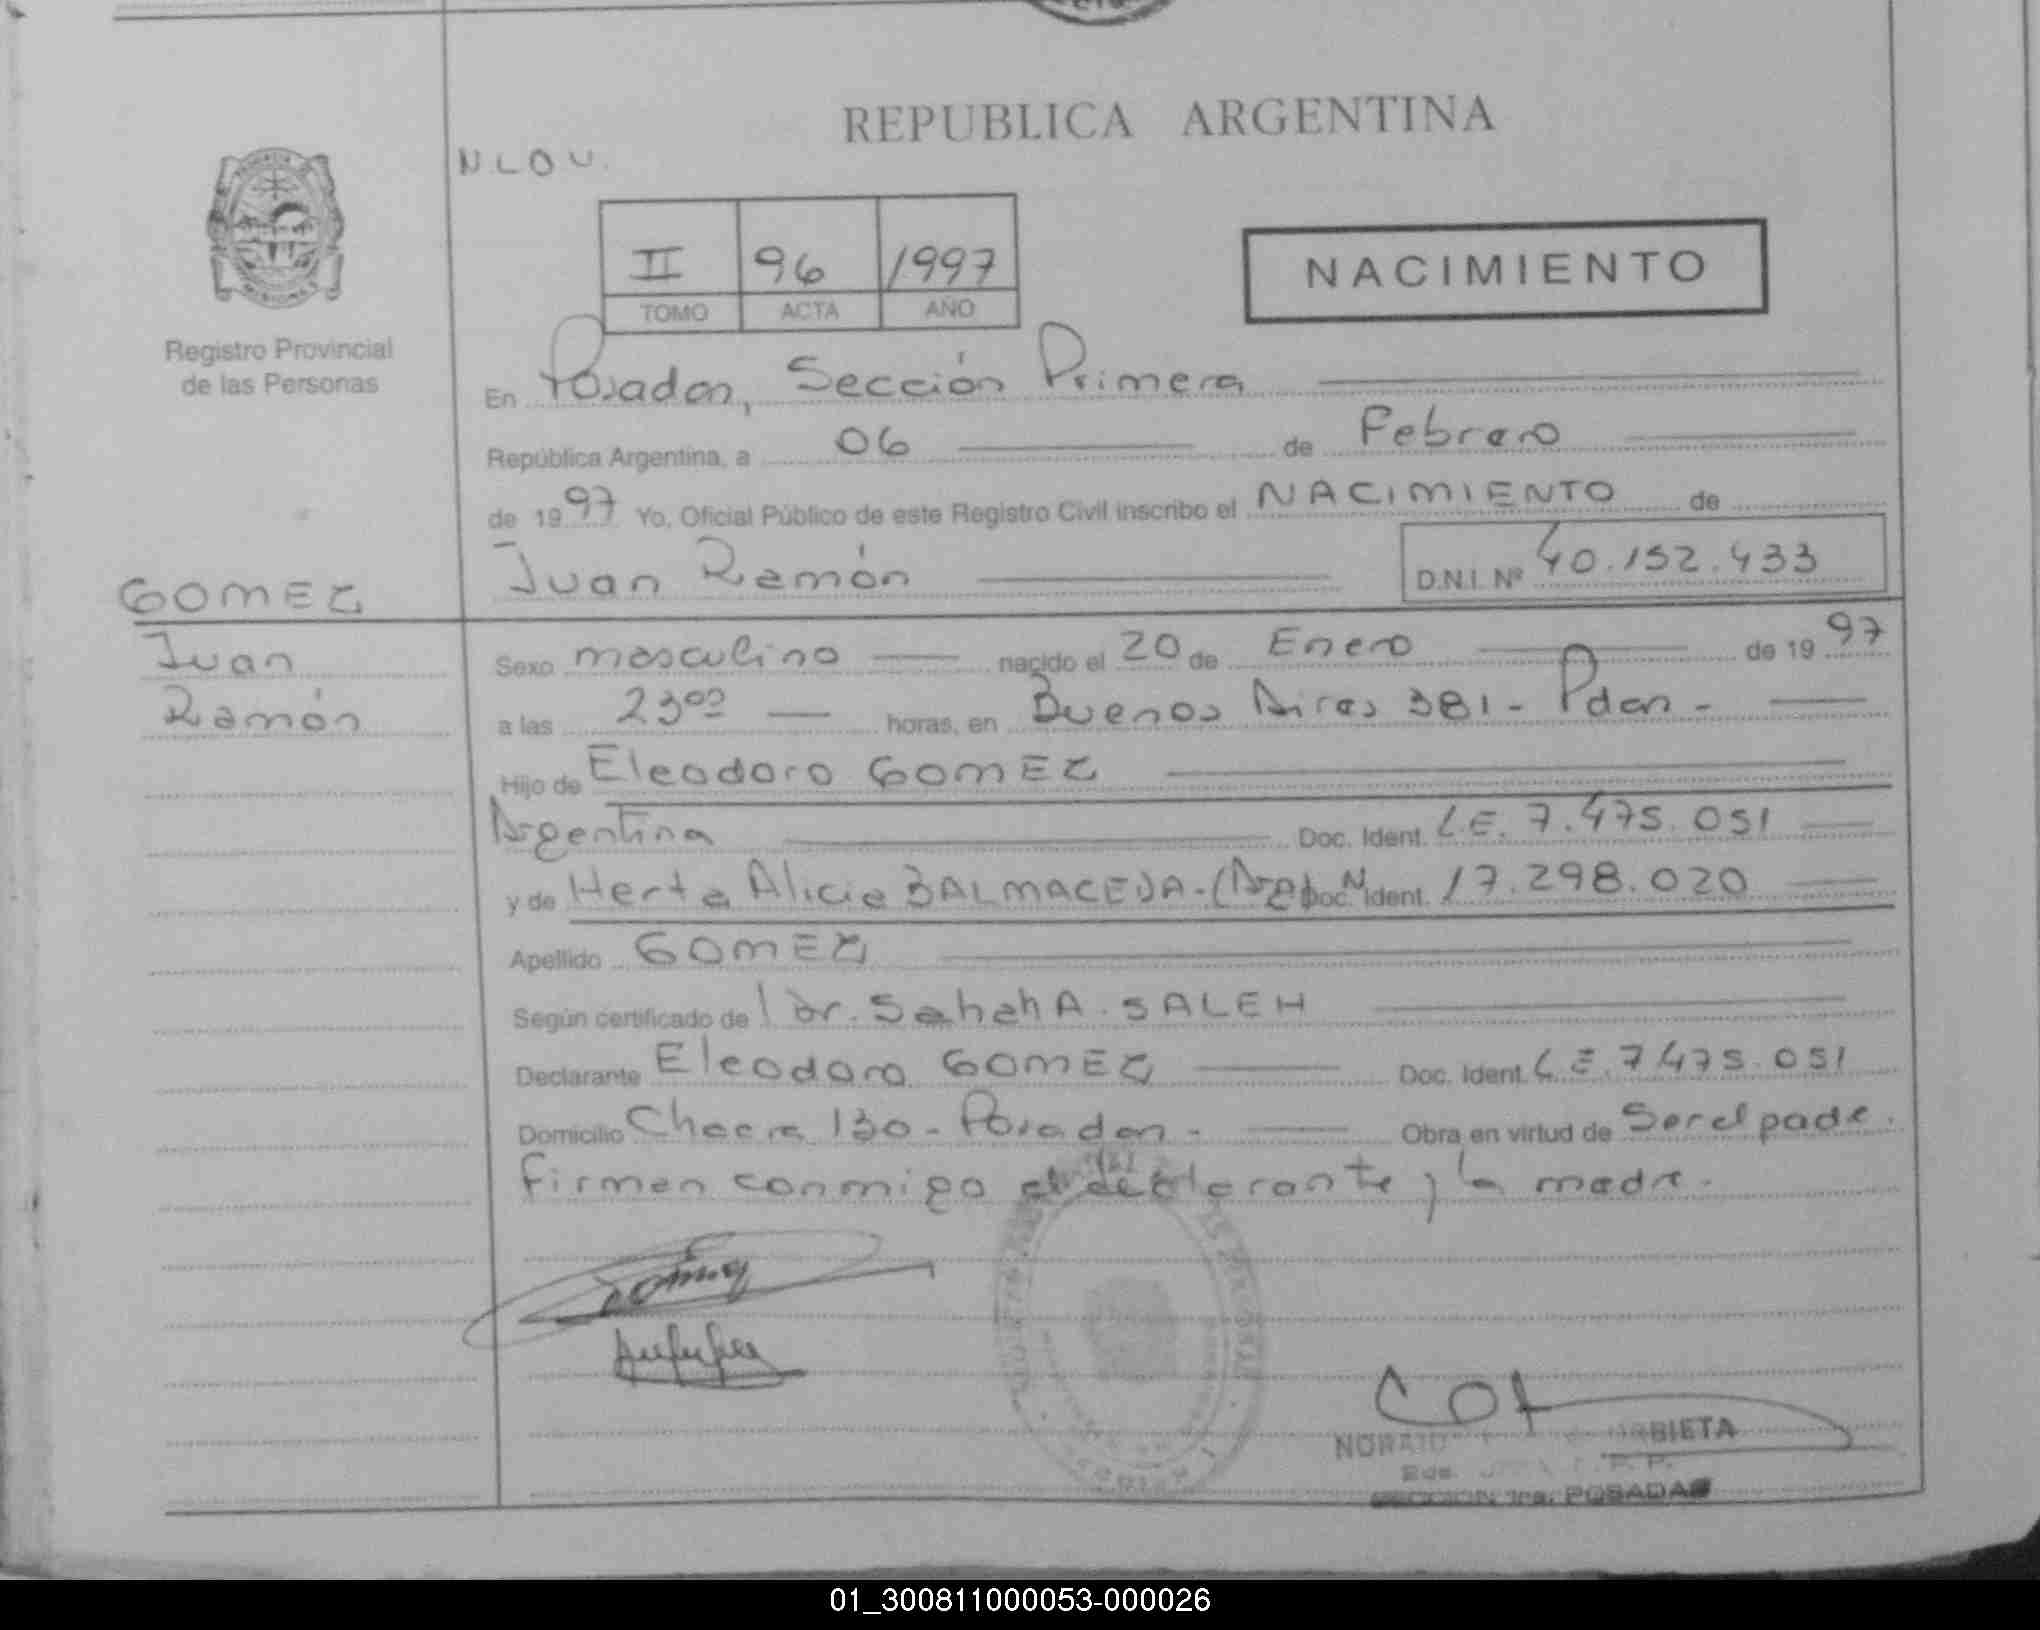 REPUBLICA ARGENTINA
N.L.O.U.
II 96 1997
TOMO ACTA AÑO
NACIMIENTO
Registro Provincial
de las Personas
En Posadas, Sección Primera
República Argentina, a 06 de Febrero
de 1997 Yo, Oficial Público de este Registro Civil inscribo el NACIMIENTO de
Juan Ramón D.N.I. Nº 40.152.433
GOMEZ
Juan
Ramón
Sexo masculino nacido el 20 de Enero de 1997
a las 23ºº horas, en Buenos Aires 381 - Pdas -
Hijo de Eleodoro GOMEZ
Argentina Doc. Ident. L.E. 7.475.051
y de Herta Alicia BALMACEDA - (Arg) Doc. Ident. 17.298.020
Apellido GOMEZ
Según certificado de Dr. SALEH
Declarante Eleodoro GOMEZ Doc. Ident. L.E. 7.475.051
Domicilio Chacra 130 - Posadas - Obra en virtud de Ser el padre.
firman conmigo el declarante y la madre.
BIETA
SECCION 1ra. POSADAS
01_300811000053-000026